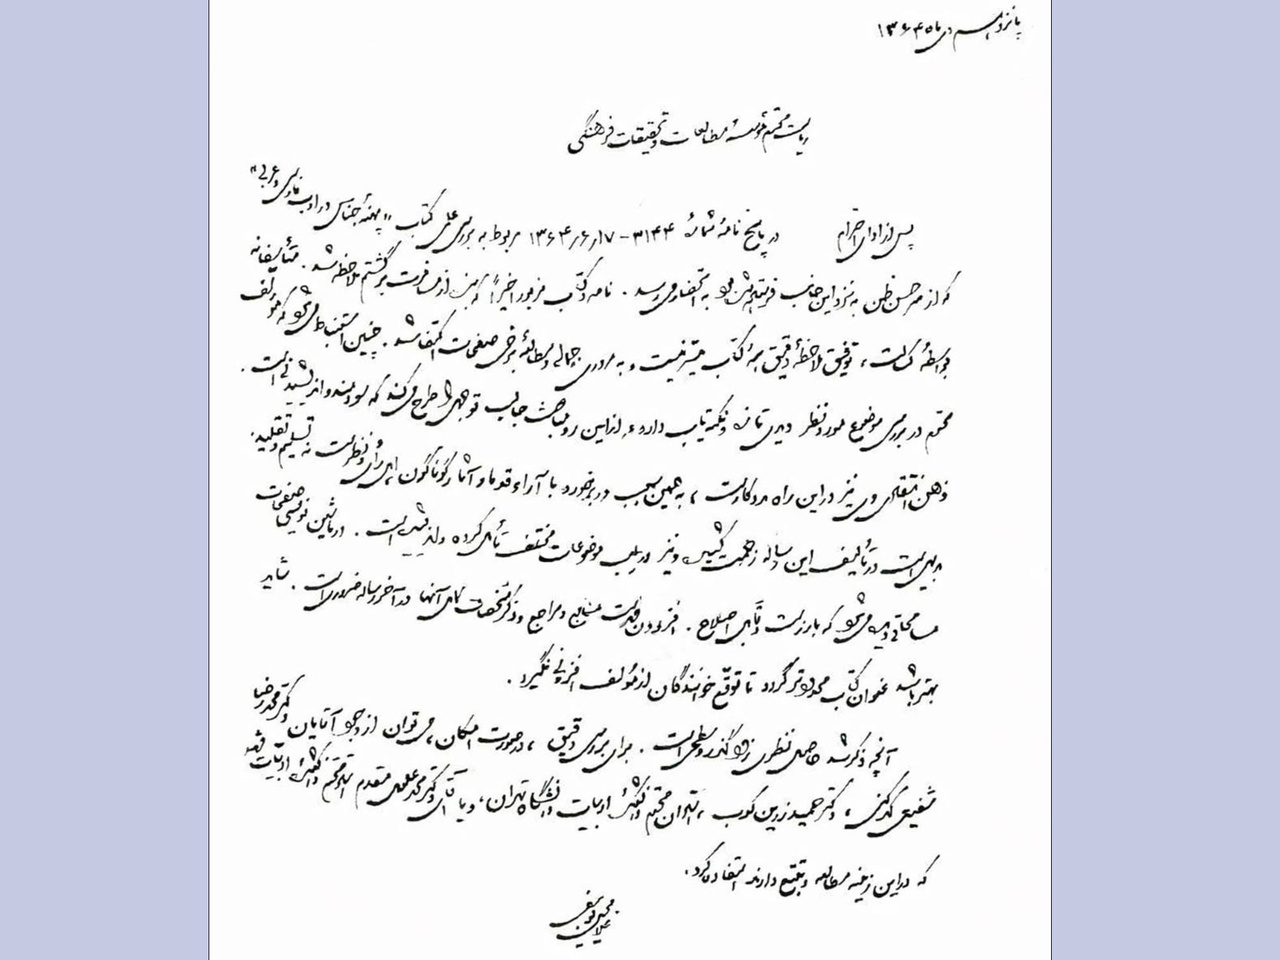 پانزدهم دی ماه ۱۳۶۴
ریاست محترم مؤسسهٔ مطالعات و تحقیقات فرهنگی
پس از ادای احترام در پاسخ نامهٔ شمارهٔ ۳۱۴۴-۱۳۶۴/۶/۱۷ مربوط به بررسی علمی کتاب «پهنهٔ جناس در ادب فارسی و عربی»
که از سر حسن ظن به نزد این جانب فرستاده شده بود به استحضار می‌رسد. نامه و کتاب مزبور اخیراً که من از مسافرت برگشتم ملاحظه شد. متأسفانه
بواسطهٔ کسالت، توفیق ملاحظهٔ دقیق همهٔ کتاب میسر نیست و به مروری اجمالی و مطالعهٔ برخی صفحات اکتفا شد. چنین استنباط می‌شود که مؤلف
محترم در بررسی موضوع مورد نظر دیدی تازه و نکته‌یاب دارد و از این رو مباحث جالب توجهی را طرح می‌کند که سودمند و اندیشیدنی است.
ذهن انتقادی وی نیز در این راه مددکار است، به همین سبب در برخورد با آراء قدما و آثار گوناگون، اهل رأی و نظر است نه تسلیم و تقلید.
بدیهی است در تألیف این رساله زحمت کشیده و نیز در باب موضوعات مختلف تأمل کرده و اندیشیده است. در ماشین نویسی صفحات
مسامحاتی دیده می‌شود که بارز است و قابل اصلاح. افزودن فهرست منابع و مراجع و ذکر مشخصات کامل آنها در آخر رساله ضروری است. شاید
بهتر باشد عنوان کتاب محدودتر گردد تا توقع خوانندگان از مؤلف افزونی نگیرد.
آنچه ذکر شد حاصل نظری زودگذر و سطحی است. برای بررسی دقیق، در صورت امکان، می‌توان از وجود آقایان دکتر محمدرضا
شفیعی کدکنی، دکتر حمید زرین کوب، استادان محترم دانشکدهٔ ادبیات دانشگاه تهران، و یا آقای دکتر محمد علوی مقدم استاد محترم دانشکدهٔ ادبیات مشهد
که در این زمینه مطالعه و تتبع دارند استفاده کرد.
غلامحسین یوسفی